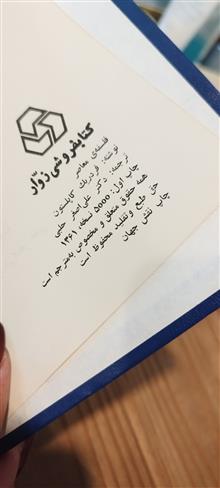 کتابفروشی زوّار
فلسفه‌ی معاصر
نوشته: فردریک کاپلستون
ترجمه: دکتر علی‌اصغر حلبی
چاپ اول: ۵۰۰۰ نسخه، ۱۳۶۱
همه حقوق متعلق و مخصوص به‌مترجم است
حق طبع و تقلید محفوظ است
چاپ نقش جهان